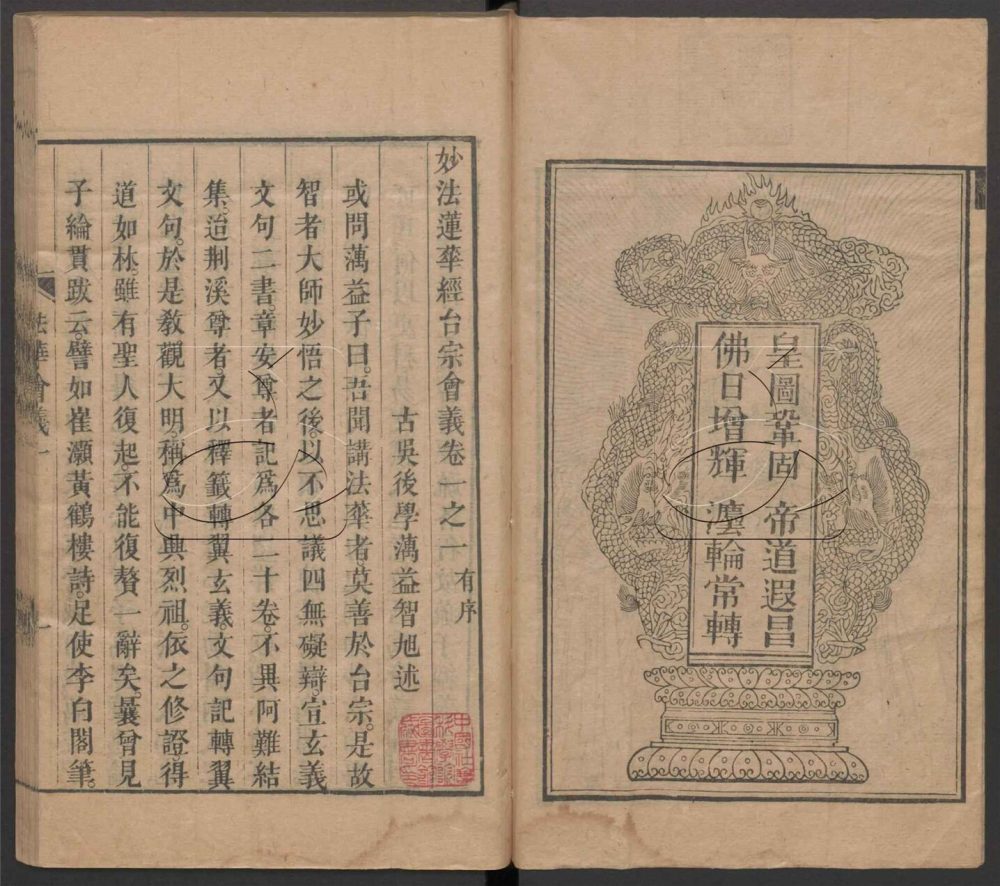 皇圖鞏固　帝道遐昌
佛日增輝　灋輪常轉
妙法蓮華經台宗會義卷一之一有序
古吳後學澫益智旭述
或問澫益子曰。吾聞講法華者莫善於台宗。是故
智者大師妙悟之後。以不思議四無礙辯。宣玄義
文句二書。章安尊者記爲各二十卷。不異阿難結
集。迨荆溪尊者。又以釋籤轉翼玄義。文句記轉翼
文句。於是教觀大明。稱爲中興烈祖。依之修證。得
道如林。雖有聖人復起。不能復贅一辭矣。曩曾見
子綸貫跋云。譬如崔灝黃鶴樓詩。足使李白閣筆。
法華會義一
一